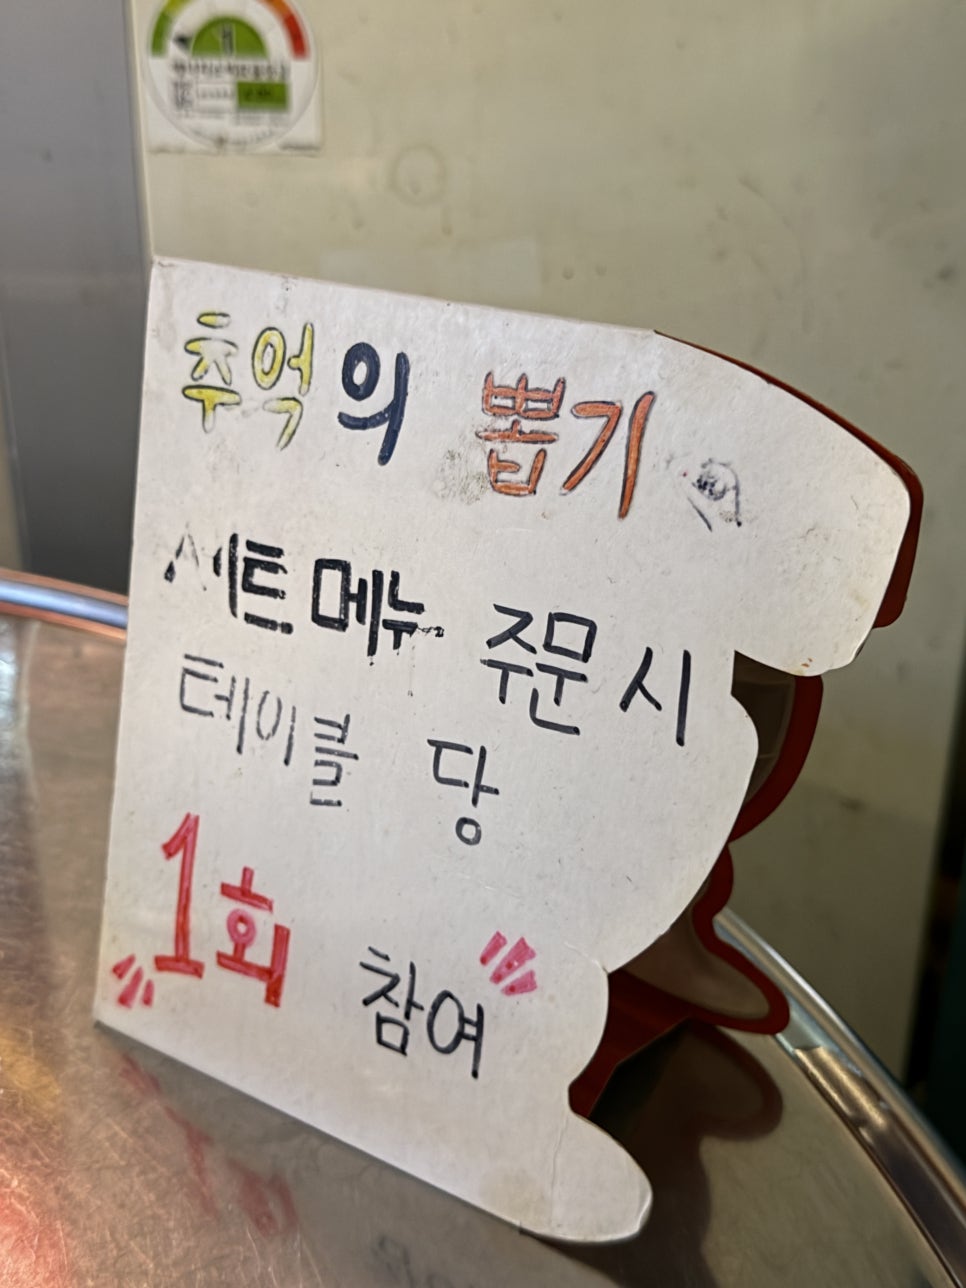 추억의 뽑기
세트메뉴 주문 시
테이블 당
1회 참여